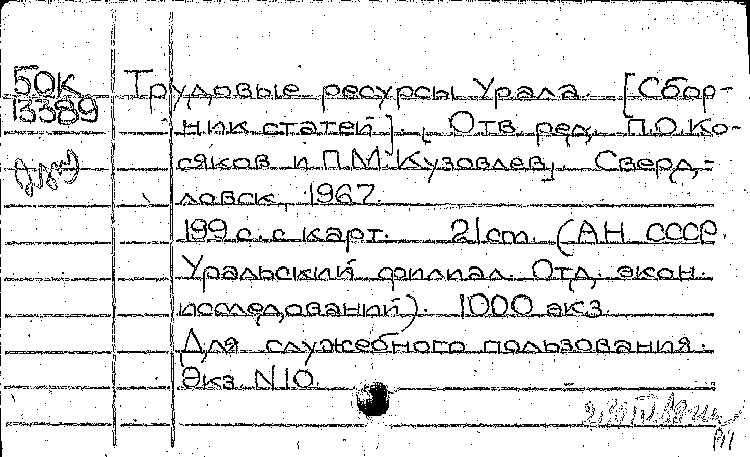 БОК
13389
Трудовые ресурсы Урала. [Сбор-
ник статей]. [Отв. ред. П.О. Ко-
сяков и П.М. Кузовлев]. Сверд-
ловск, 1967.
199 с. с карт. 21 cm. (АН СССР.
Уральский филиал. Отд. экон.
исследований). 1000 экз.
Для служебного пользования.
Экз. N 10.